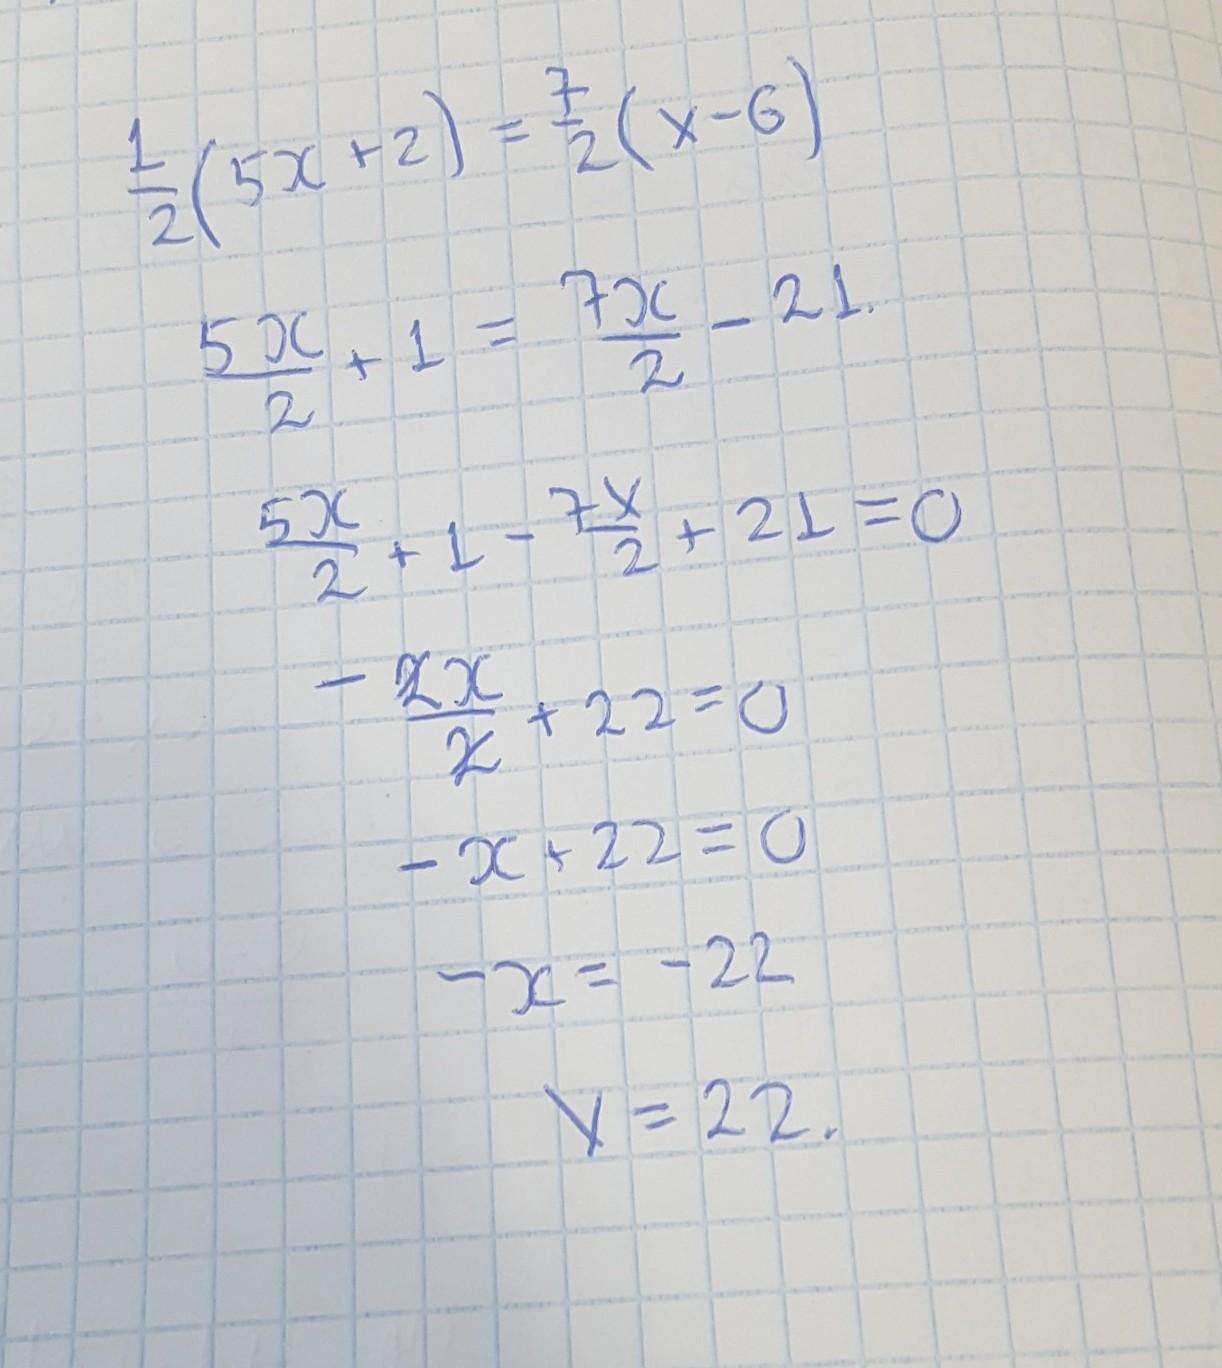 1/2(5x+2)=7/2(x-6)
5x/2+1=7x/2-21.
5x/2+1-7x/2+21=0
-2x/2+22=0
-x+22=0
-x=-22
x=22.